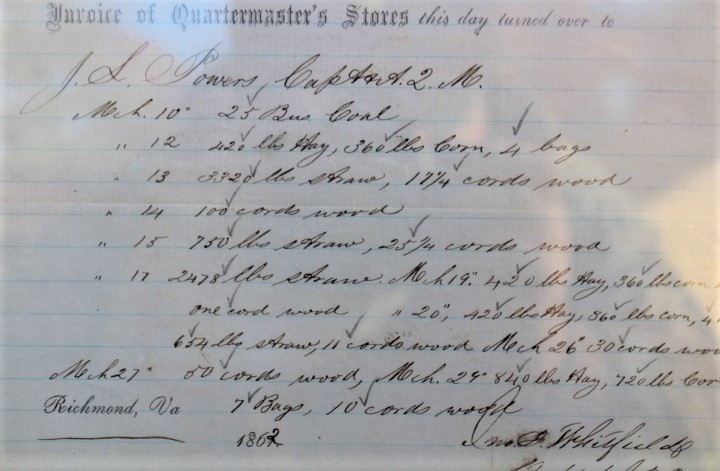 Invoice of Quartermaster's Stores this day turned over to
J. L. Powers, Capt & A. Q. M.
Mch. 10" 25 Bus Coal
" 12 420 lbs Hay, 360 lbs Corn, 4 bags
" 13 3320 lbs straw, 17 1/4 cords wood
" 14 100 cords wood
" 15 750 lbs straw, 25 1/4 cords wood
" 17 2478 lbs straw Mch 19" 420 lbs Hay, 360 lbs corn
one cord wood " 20", 420 lbs Hay, 360 lbs corn, 4
654 lbs straw, 11 cords wood Mch 26" 30 cords
Mch 27" 50 cords wood, Mch. 29" 840 lbs Hay, 720 lbs Cor
Richmond, Va 7 Bags, 10 cords wood
1862 Jno. Whitfield